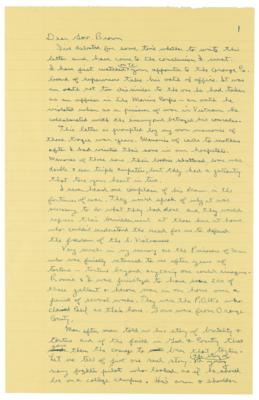 1
Dear Gov. Brown
I've debated for some time whether to write this
letter and have come to the conclusion I must.
I have just watched your appointee to the Orange Co.
board of supervisors take his oath of office. It was
an oath not too dissimilar to the one he had taken
as an officer in the Marine Corps - an oath he
violated when as a prisoner of war in Vietnam he
collaborated with the enemy and betrayed his comrades.
This letter is prompted by my own memories of
those tragic war years. Memories of calls to mothers
after I had visited their sons in our hospitals.
Memories of those sons their bodies shattered some were
double & even triple amputees but they had a gallantry
that tore your heart in two.
I never heard one complain of his draw in the
fortunes of war. They would speak of why it was
necessary to do what they had done and they would
express their bewilderment at those here at home
who could not understand the need for us to defend
the freedom of the S. Vietnamese
Very much in my memory are the Prisoners of War
who was finally returned to us after years of
torture - torture beyond anything one could imagine.
Nancy & I were privileged to have some 250 of
these gallant & heroic men in our home over a
period of several weeks. They were the P.O.W.'s who
claimed Calif as their home. Some were from Orange
County.
Man after man told us his story of brutality &
torture and of the faith in God & Country that
gave them the courage to bear that torture.
Let me tell of just one such story
navy fighter pilot who looked as if he should
be on a college campus. His arm & shoulder